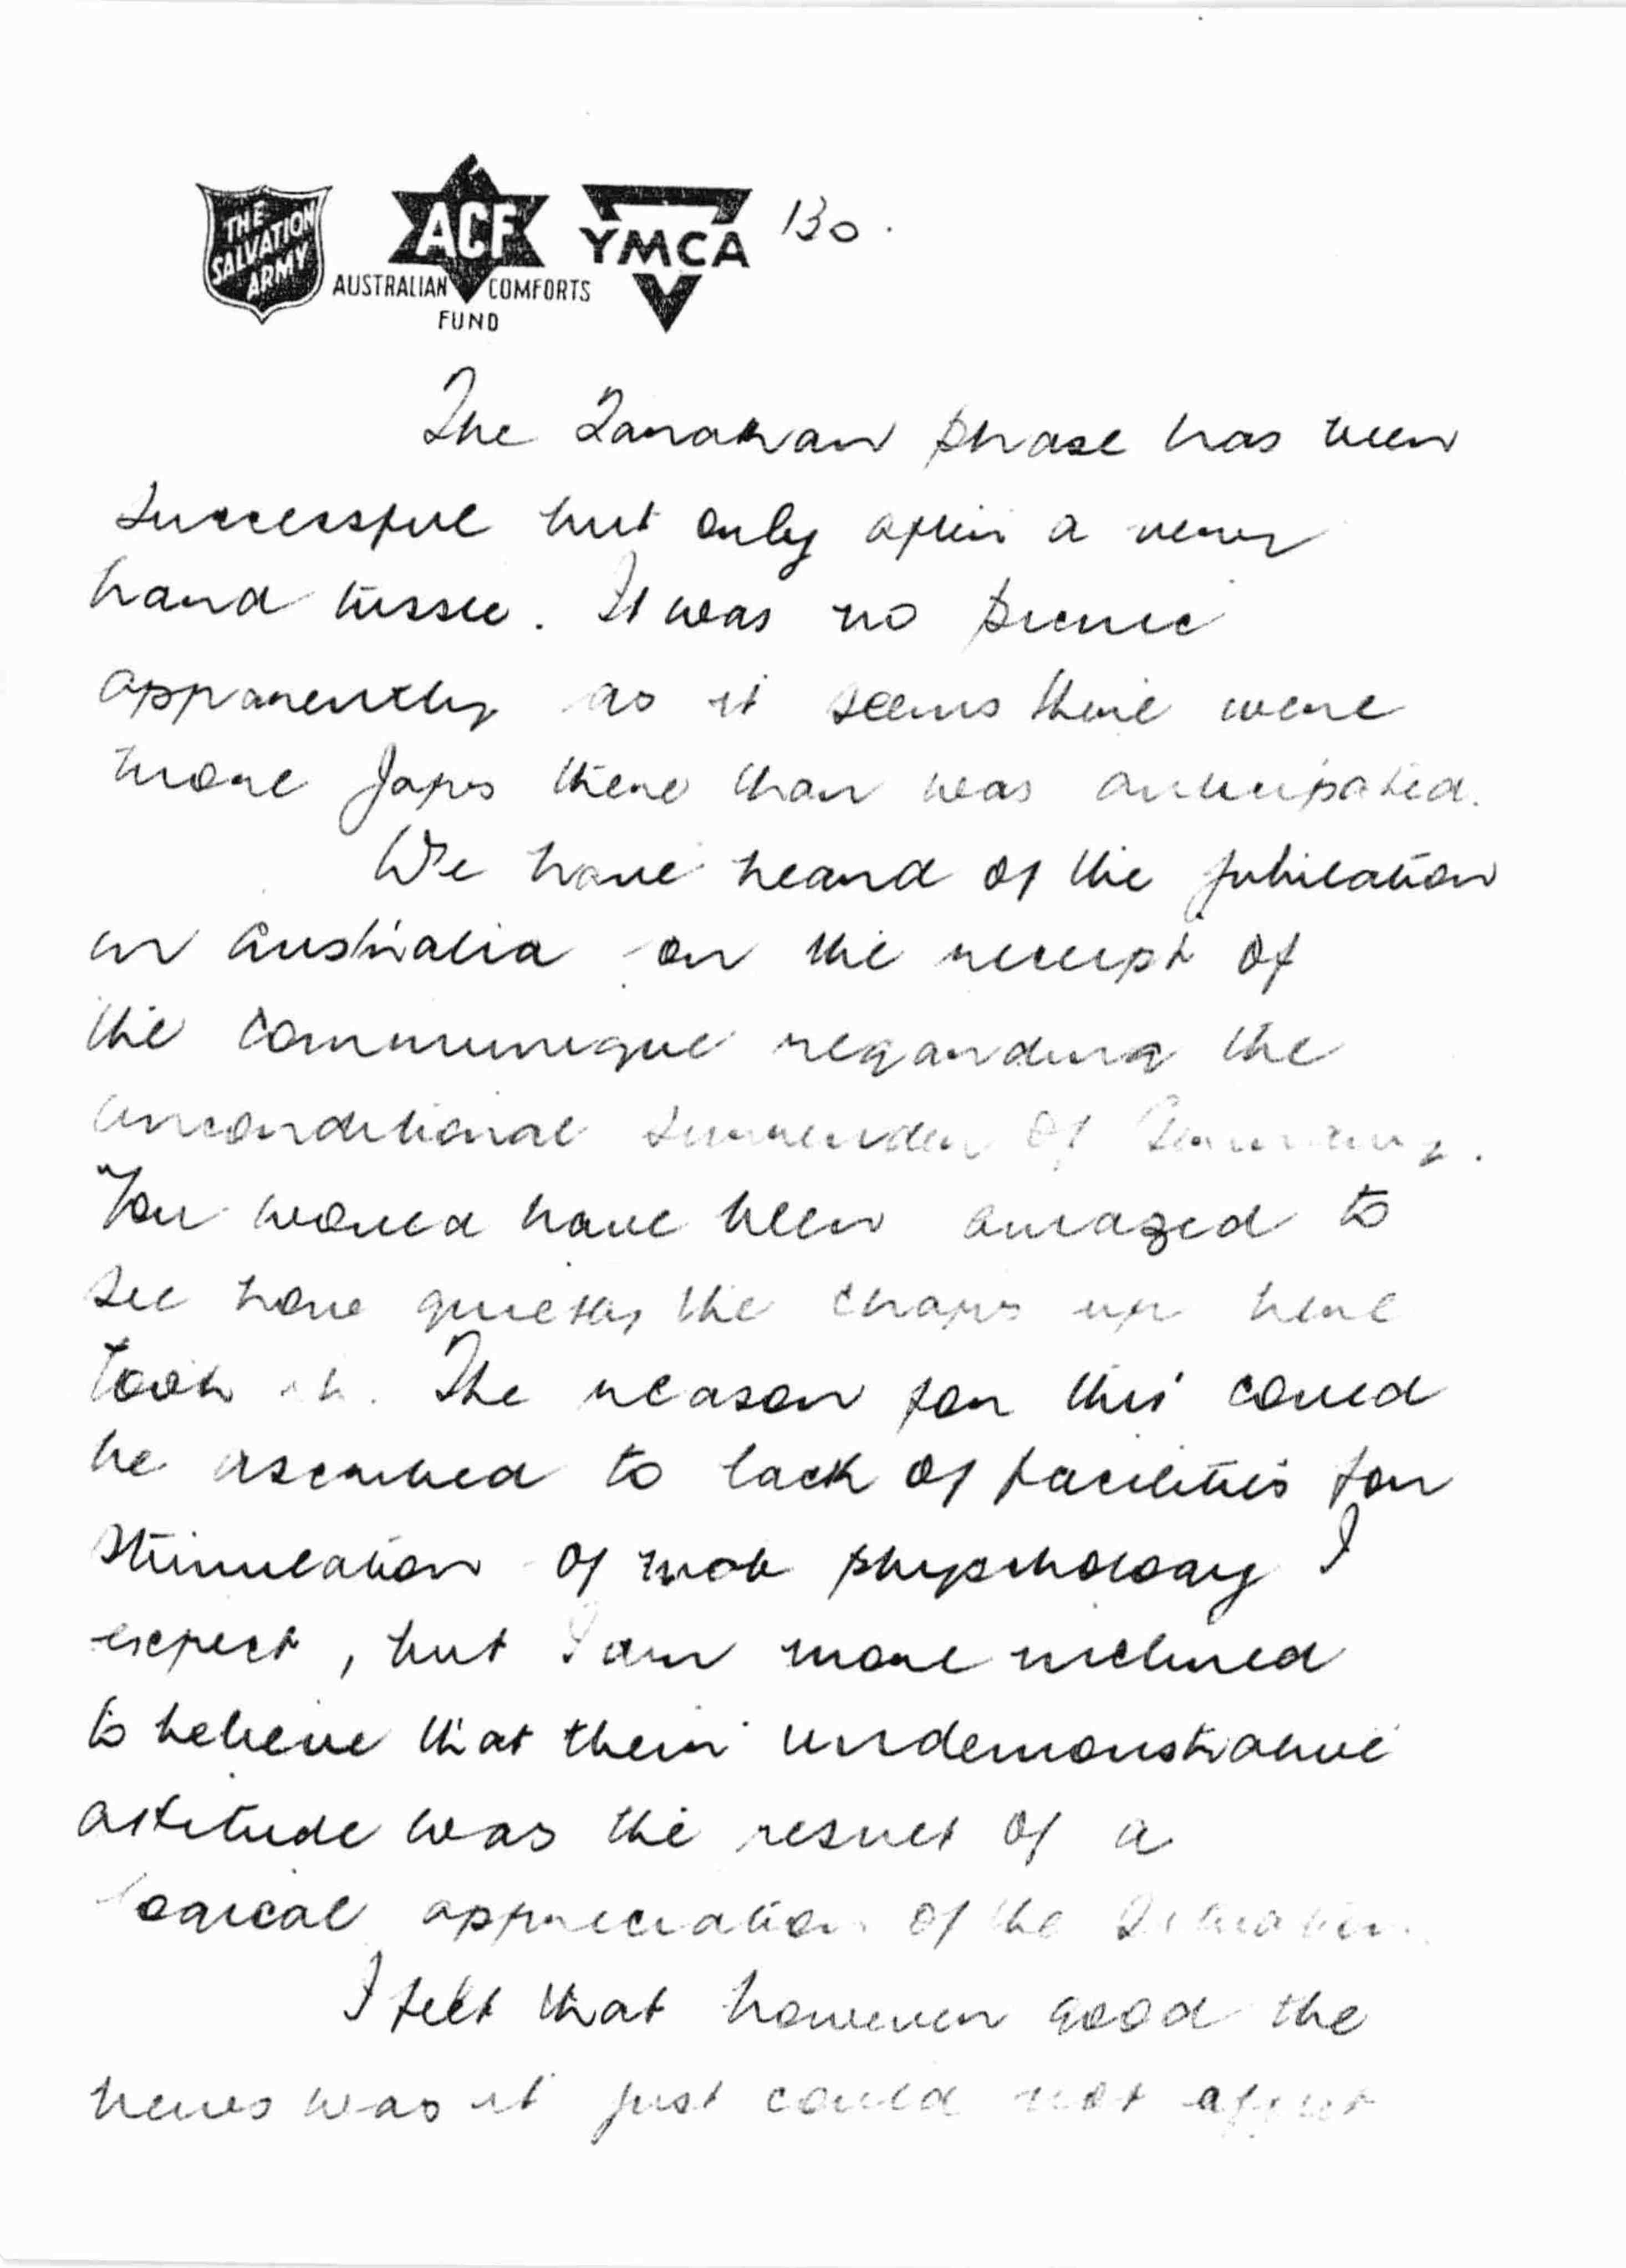 THE SALVATION ARMY
ACF
AUSTRALIAN COMFORTS FUND
YMCA
130.
The Tarakan phase has been
successful but only after a very
hard tussle. It was no picnic
apparently as it seems there were
more Japs there than was anticipated.
We have heard of the jubilation
in Australia on the receipt of
the communique regarding the
unconditional surrender of Germany.
You would have been amazed to
see how quietly the chaps up here
took it. The reason for this could
be ascribed to lack of facilities for
stimulation of mob physchology I
expect, but I am more inclined
to believe that their undemonstrative
attitude was the result of a
logical appreciation of the situation.
I felt that however good the
news was it just could not affect